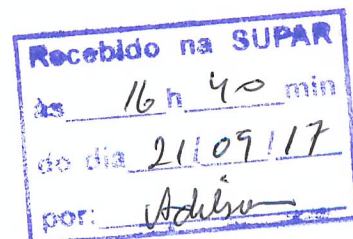 Recebido na SUPAR
às 16 h 40 min
do dia 21/09/17
por: Adilson